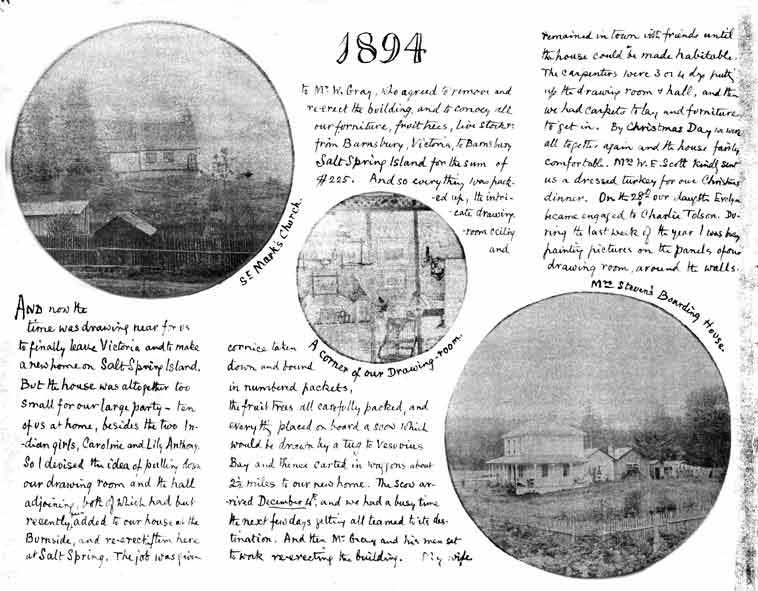 1894
St Mark's Church.
AND now the
time was drawing near for us
to finally leave Victoria and to make
a new home on Salt Spring Island.
But the house was altogether too
small for our large party - ten
of us at home, besides the two In-
-dian girls, Caroline and Lily Anthony.
So I devised the idea of pulling down
our drawing room and the hall
adjoining, both of which had but
recently been added to our house at the
Burnside, and re-erect them here
at Salt Spring. The job was given
to Mr. W. Gray, who agreed to remove and
re-erect the building, and to convey all
our furniture, fruit trees, live stock &c
from Barnsbury, Victoria, to Barnsbury
Salt Spring Island for the sum of
$225. And so everything was pack-
-ed up, the intri-
-cate drawing
-room ceiling
and
A corner of our Drawing-room.
cornice taken
down and bound
in numbered packets,
the fruit trees all carefully packed, and
everything placed on board a scow which
would be drawn by a tug to Vesuvius
Bay and thence carted in waggons about
2½ miles to our new home. The scow ar-
-rived December 4th, and we had a busy time
the next few days getting all teamed to its des-
tination. And then Mr Gray and his men set
to work re-erecting the building. My wife
remained in town with friends until
the house could be made habitable.
The carpenters were 3 or 4 dys putting
up the drawing room & hall, and then
we had carpets to lay and furniture
to get in. By Christmas Day we were
all together again and the house fairly
comfortable. Mrs W. E. Scott kindly sent
us a dressed turkey for our Christmas
dinner. On the 28th our daughter Evelyn
became engaged to Charlie Tolson. Du-
-ring the last week of the year I was busy
painting pictures on the panels of our
drawing room, around the walls.
Mrs Steven's Boarding House